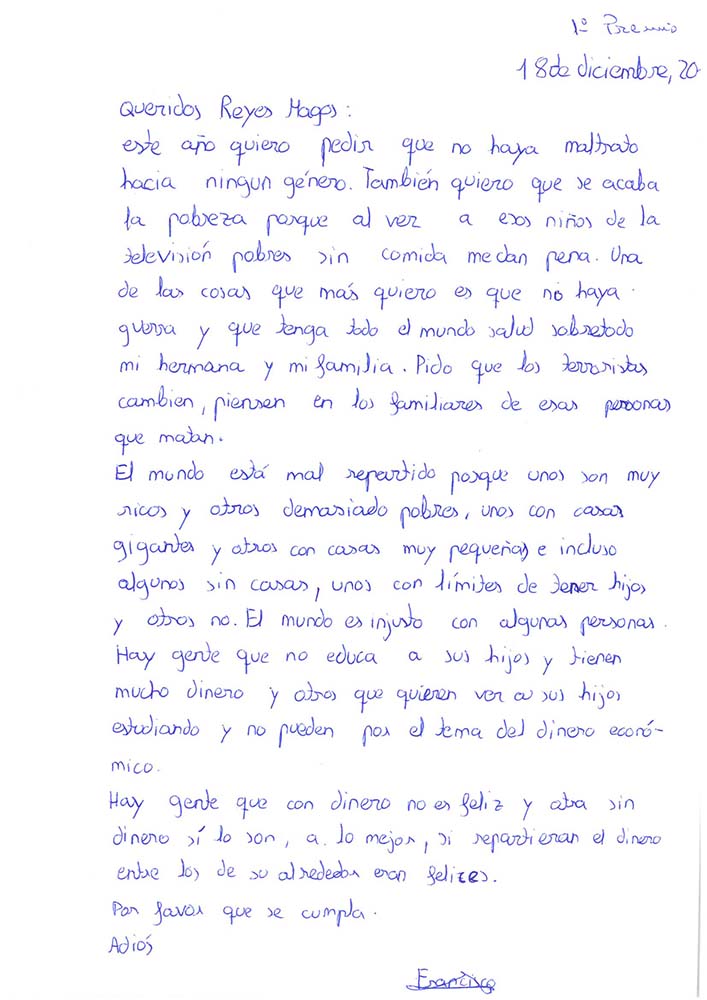 1º Premio
18 de diciembre, 20
Queridos Reyes Magos:
este año quiero pedir que no haya maltrato
hacia ningun género. También quiero que se acaba
la pobreza porque al ver a esos niños de la
televisión pobres sin comida me dan pena. Una
de las cosas que más quiero es que no haya
guerra y que tenga todo el mundo salud sobretodo
mi hermana y mi familia. Pido que los terroristas
cambien, piensen en los familiares de esas personas
que matan.
El mundo está mal repartido porque unos son muy
ricos y otros demasiado pobres, unos con casas
gigantes y otros con casas muy pequeñas e incluso
algunos sin casas, unos con límites de tener hijos
y otros no. El mundo es injusto con algunas personas.
Hay gente que no educa a sus hijos y tienen
mucho dinero y otros que quieren ver a sus hijos
estudiando y no pueden por el tema del dinero econó-
mico.
Hay gente que con dinero no es feliz y otra sin
dinero sí lo son, a lo mejor, si repartieran el dinero
entre los de su alrededor eran felices.
Por favor que se cumpla.
Adiós
Francisco